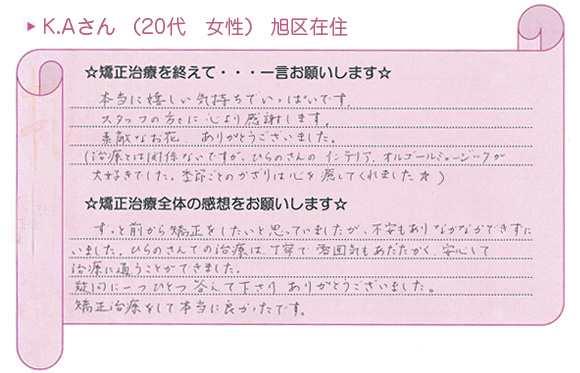 K.Aさん （20代　女性） 旭区在住
☆矯正治療を終えて・・・一言お願いします☆
本当に嬉しい気持ちでいっぱいです。
スタッフの方々に心より感謝します。
素敵なお花　ありがとうございました。
(治療とは関係ないですが、ひらのさんの インテリア、オルゴールミュージックが
大好きでした。季節ごとのかざりは心を癒してくれました )
☆矯正治療全体の感想をお願いします☆
ずっと前から矯正をしたいと思っていましたが、不安もありなかなかできずに
いました。ひらのさんでの治療は、丁寧で 雰囲気もあたたかく、安心して
治療に通うことができました。
疑問に一つひとつ 答えて下さり ありがとうございました。
矯正治療をして本当に良かったです。